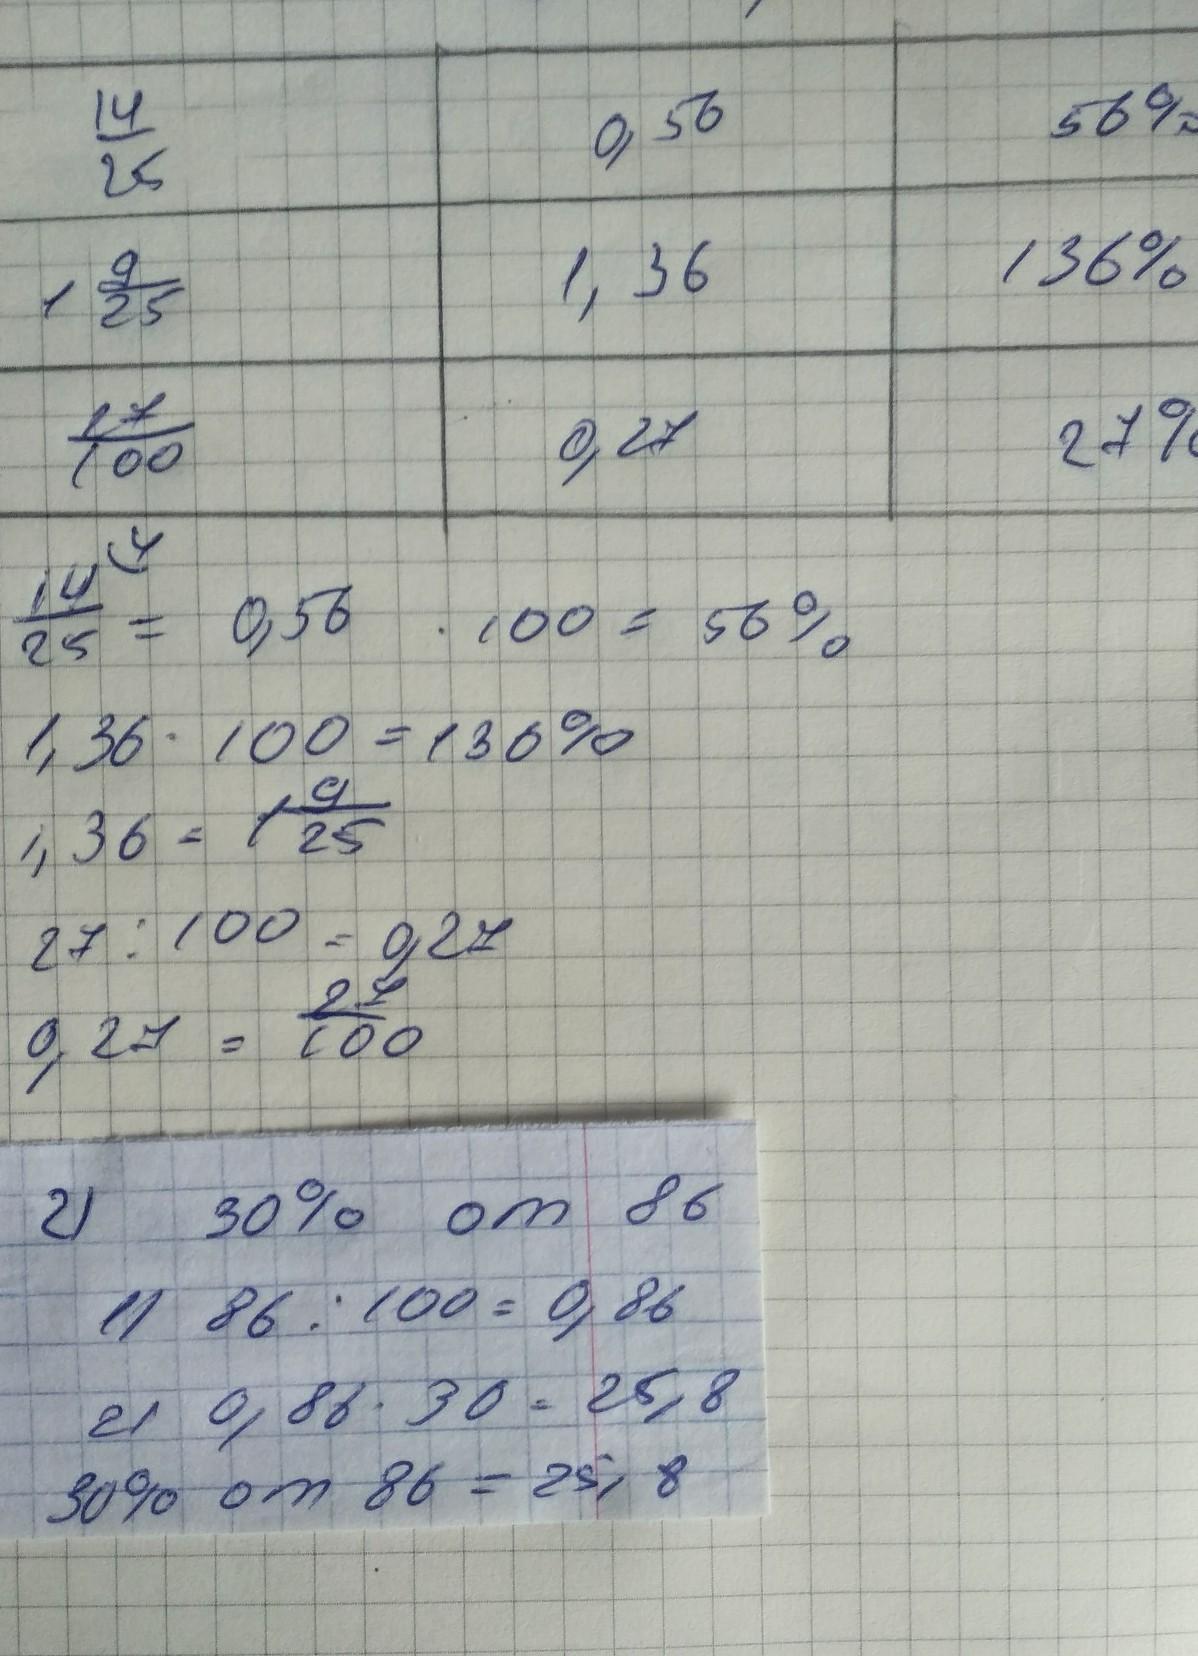 14/25 0,56 56%
1 9/25 1,36 136%
17/100 0,27 27%
14/25 (4 = 0,56 · 100 = 56%
1,36 · 100 = 136%
1,36 = 1 9/25
27 : 100 = 0,27
0,27 = 27/100
2) 30% от 86
1) 86 : 100 = 0,86
2) 0,86 · 30 = 25,8
30% от 86 = 25,8